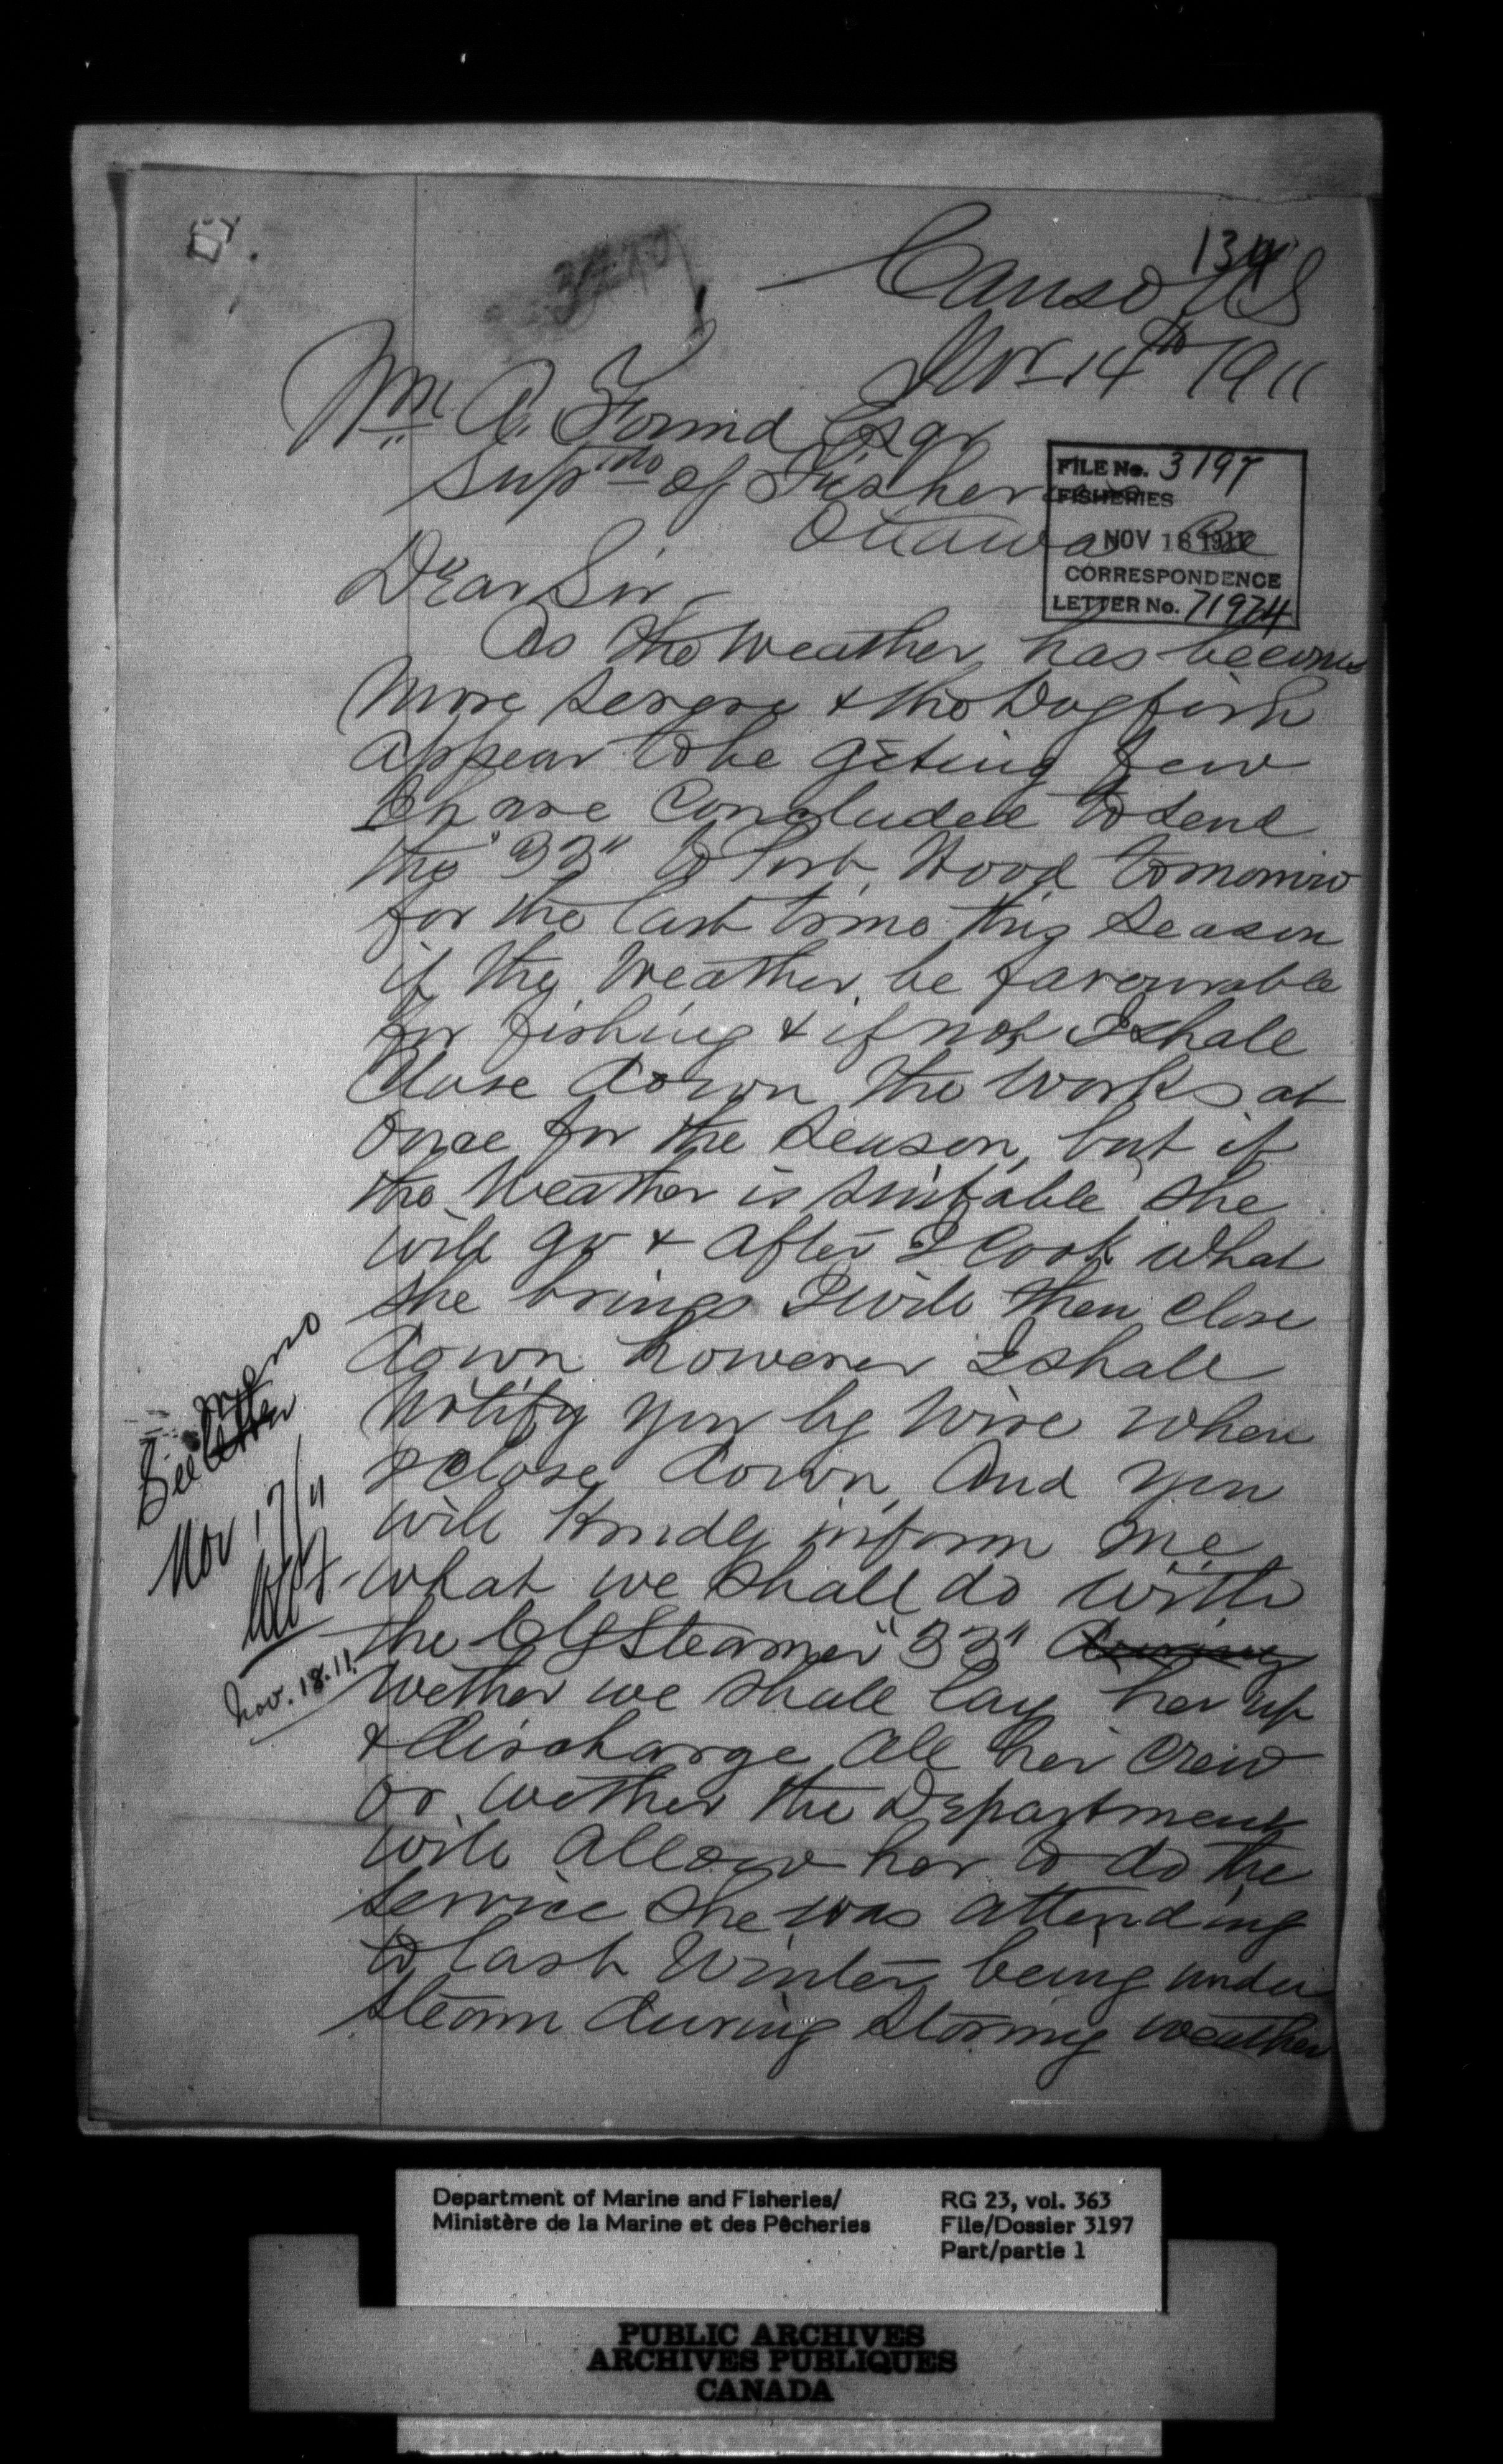 Canso NS
Nov 14th 1911
Wm. A. Found Esqr
Suptdt of Fisheries
Ottawa
FILE No. 3197
FISHERIES
NOV 18 1911
CORRESPONDENCE
LETTER No. 71974
Dear Sir
As the Weather has become
More severe & the Dogfish
appear to be geting few
I have Concluded to send
the "33" to Port Hood tomorrow
for the last time this Season
if the Weather be favourable
for fishing & if not I shall
Close down the Works at
once for the Season, but if
the Weather is suitable she
will go & after I Cook what
she brings I will then close
down however I shall
Notify you by Wire when
I close down and you
will Kindly inform me
what we shall do with
the CG Steamer "33"
wether we shall lay her up
& discharge all her Crew
or wether the Department
will allow her to do the
service she was attending
to last Winter, being under
steam during stormy weather
See memo
letter
Nov 17/11
Nov. 18.11.
Department of Marine and Fisheries/
Ministère de la Marine et des Pêcheries
RG 23, vol. 363
File/Dossier 3197
Part/partie 1
PUBLIC ARCHIVES
ARCHIVES PUBLIQUES
CANADA